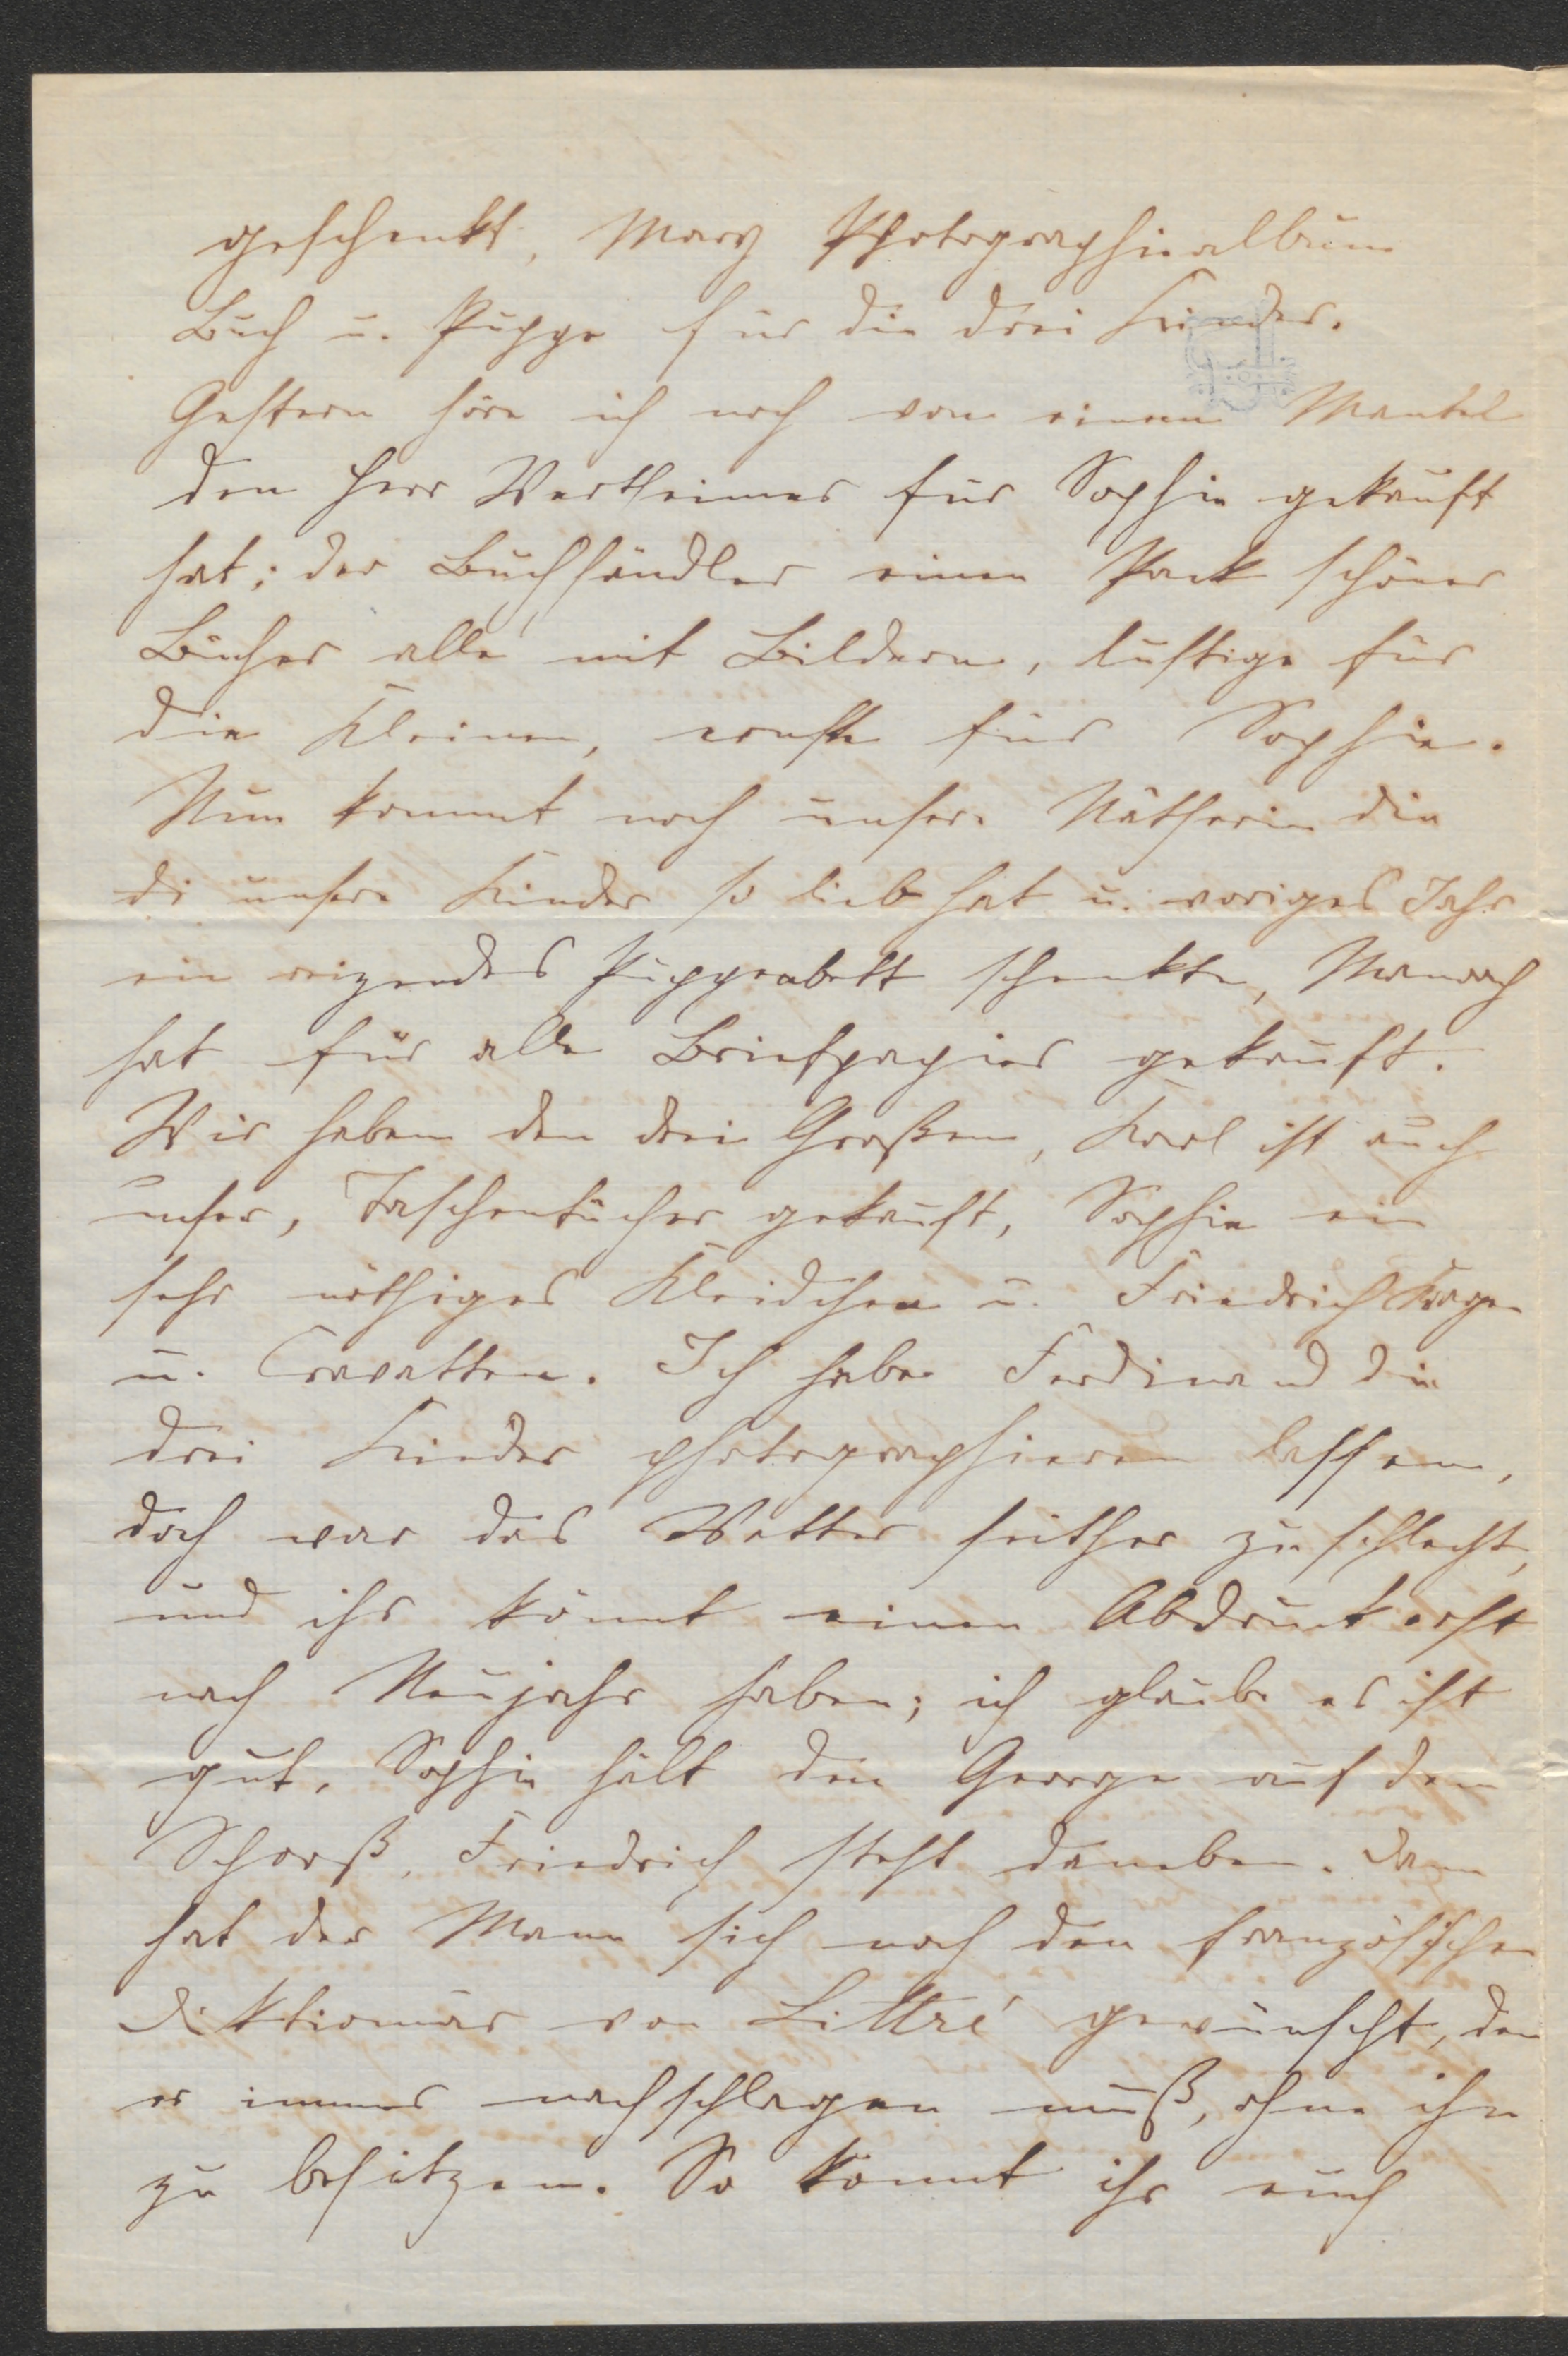 geschenkt, Mary Photographiealbum
Buch u. Puppe für die drei Kinder.
Gestern höre ich noch von einem Mantel
den Herr Wertheimer für Sophie gekauft
hat; der Buchhändler einen Pack schöner
Bücher alle mit Bildern, lustige für
die Kleinen, ernste für Sophie.
Nun kommt noch unsere Nätherin die
di unsere Kinder so lieb hat u. voriges Jahr
ein reizendes Puppenbett schenkte,
hat für alle Briefpapier gekauft.
Wir haben den drei Großen, Karl ist auch
unser, Taschentücher gekauft, Sophie ein
sehr nöthiges Kleidchen u. Friedrich Kragen
u. Cravatten. Ich habe Ferdinand die
drei Kinder photographieren lassen,
doch war das Wetter seither zu schlecht,
und ihr könnt einen Abdruck erst
nach Neujahr haben; ich glaube es ist
gut, Sophie hält den George auf dem
Schooß, Friedrich steht daneben. Dann
hat der Mann sich noch den französischen
Diktionär von Littré gewünscht, den
er immer nachschlagen muß, ohne ihn
zu besitzen. So könnt ihr euch